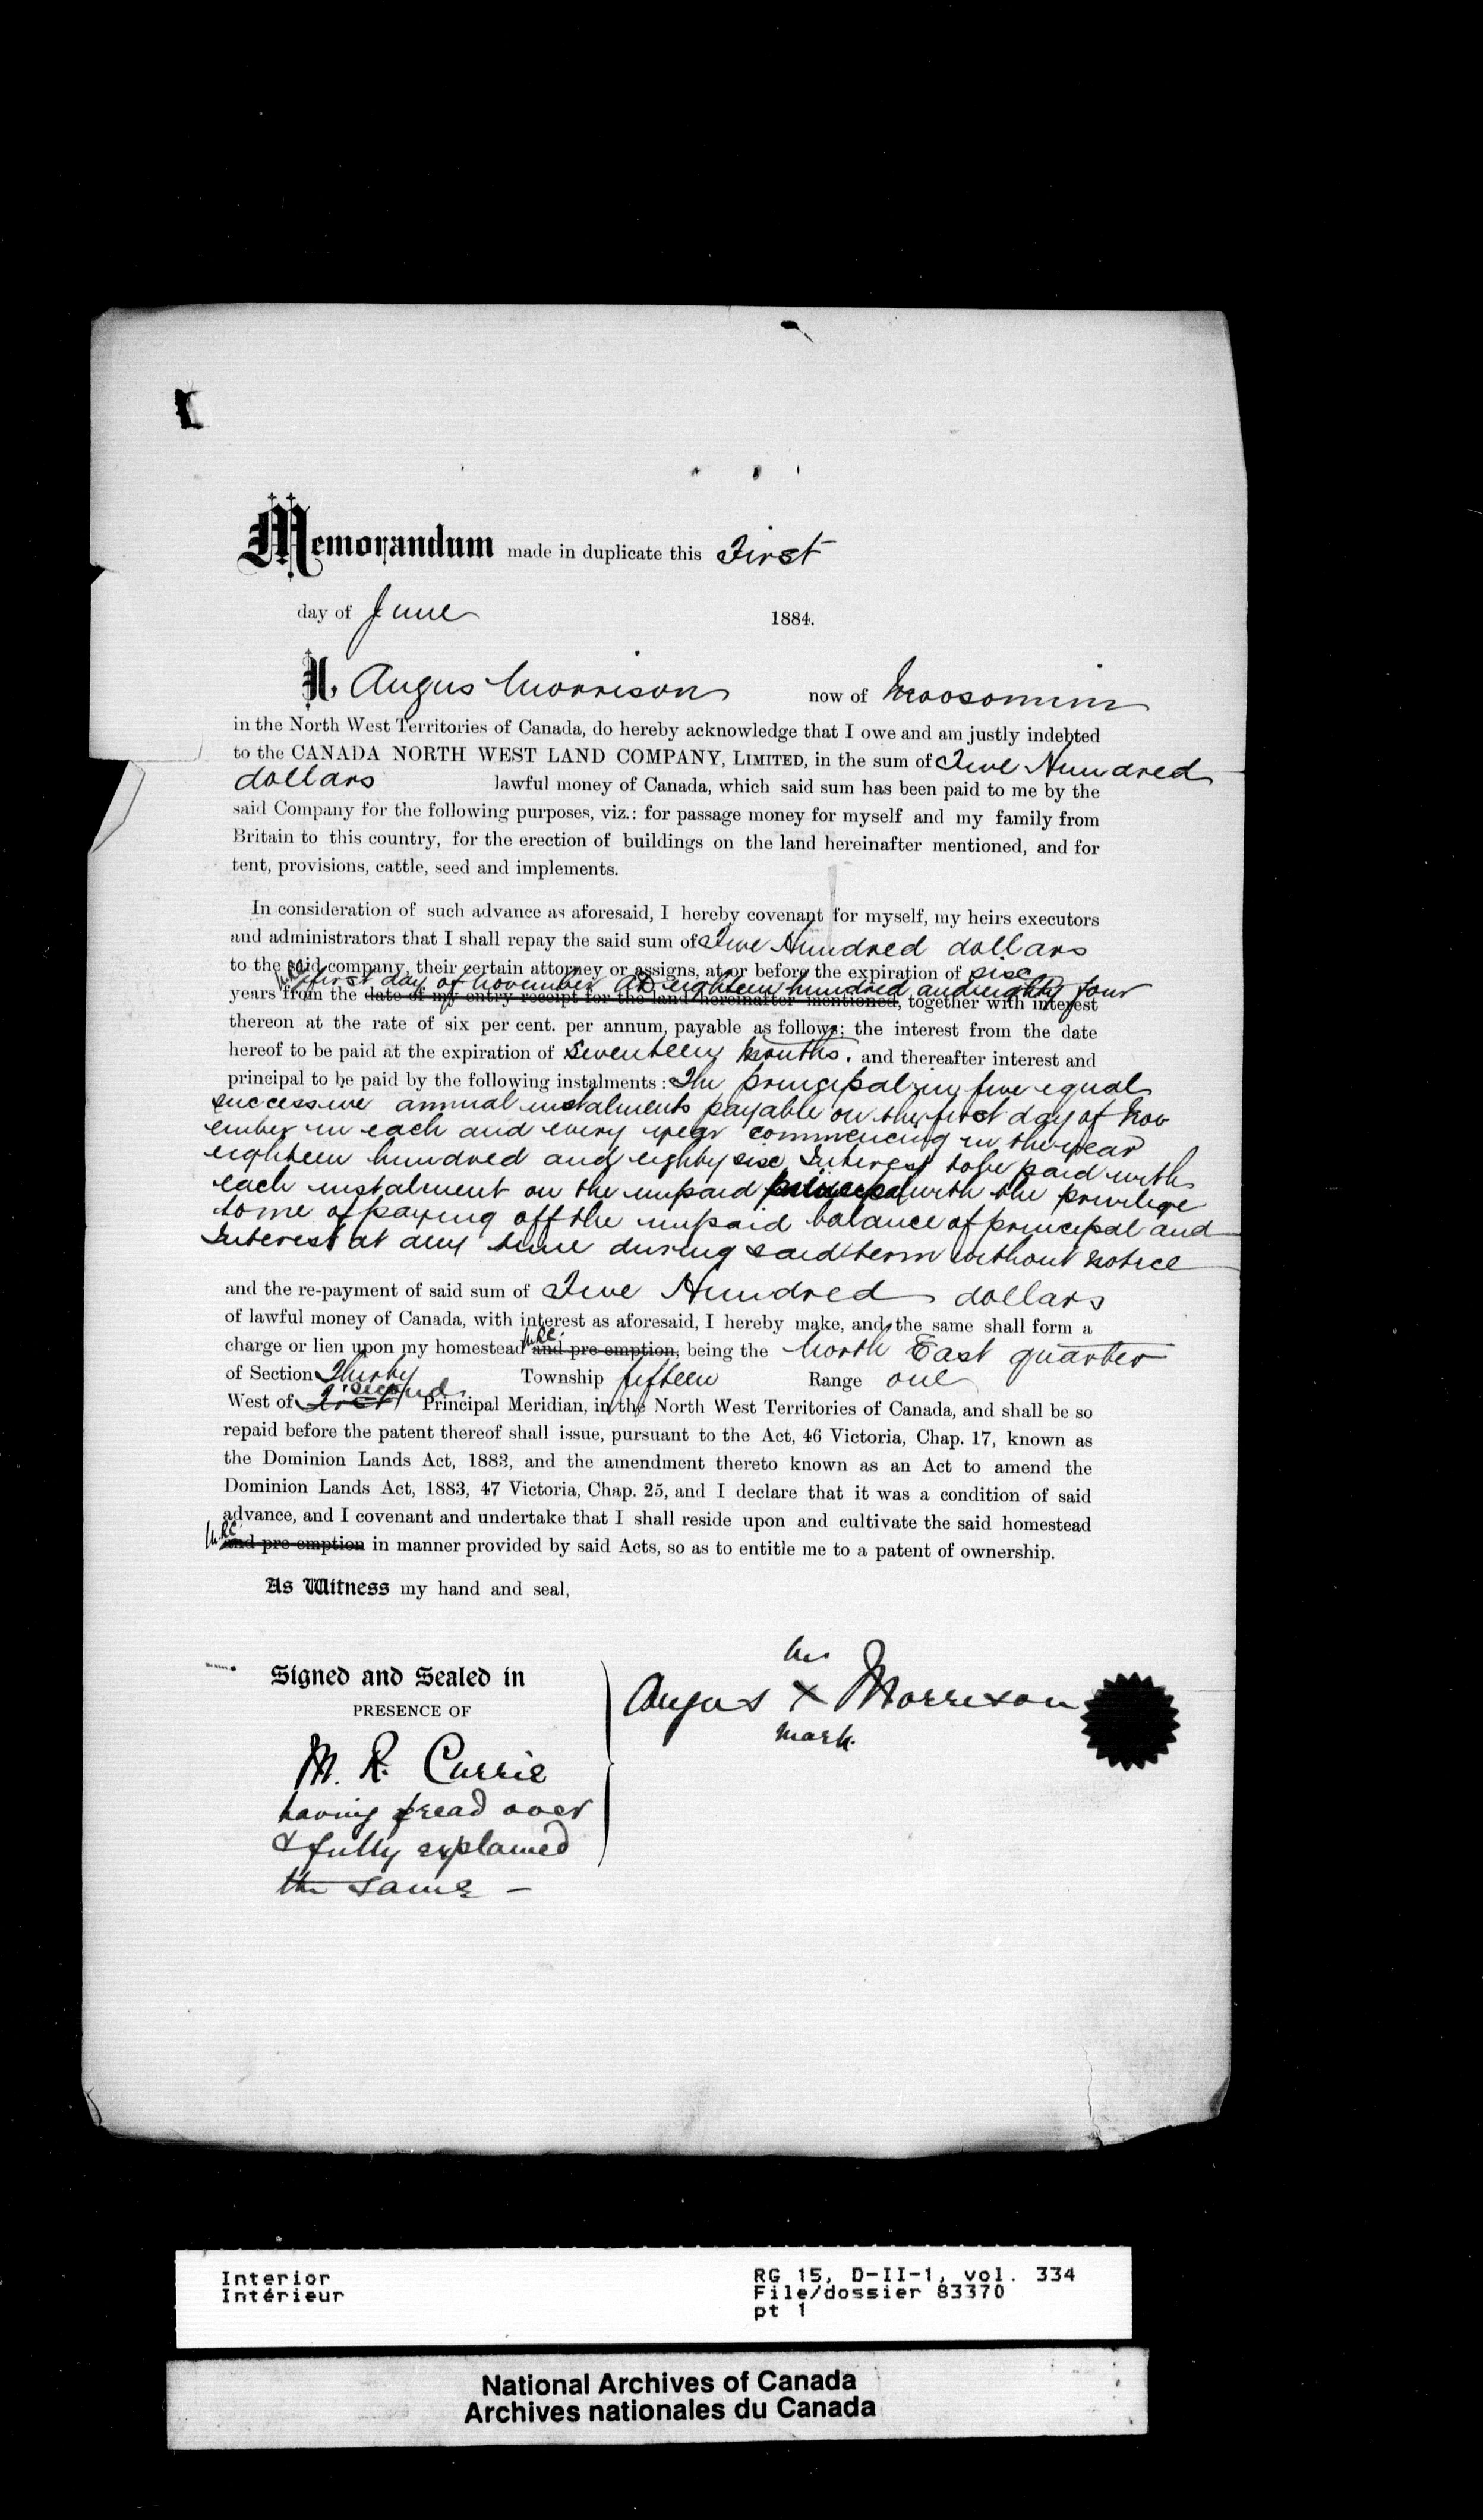 Memorandum made in duplicate this First
day of June 1884.
I, Angus Morrison now of Moosomin
in the North West Territories of Canada, do hereby acknowledge that I owe and am justly indebted
to the CANADA NORTH WEST LAND COMPANY, LIMITED, in the sum of Five Hundred
dollars lawful money of Canada, which said sum has been paid to me by the
said Company for the following purposes, viz.: for passage money for myself and my family from
Britain to this country, for the erection of buildings on the land hereinafter mentioned, and for
tent, provisions, cattle, seed and implements.
In consideration of such advance as aforesaid, I hereby covenant for myself, my heirs executors
and administrators that I shall repay the said sum of Five Hundred dollars
to the said company, their certain attorney or assigns, at or before the expiration of six
first day of November AD eighteen hundred and eighty four
years from the date of my entry receipt for the land hereinafter mentioned, together with interest
thereon at the rate of six per cent. per annum, payable as follows; the interest from the date
hereof to be paid at the expiration of Seventeen Months. and thereafter interest and
principal to be paid by the following instalments: The principal in five equal
successive annual instalments payable on the first day of Nov
ember in each and every year commencing in the year
eighteen hundred and eighty six Interest to be paid with
each instalment on the unpaid principal with the privilege
to me of paying off the unpaid balance of principal and
Interest at any time during said term without notice
and the re-payment of said sum of Five Hundred dollars
of lawful money of Canada, with interest as aforesaid, I hereby make, and the same shall form a
M.R.C.
charge or lien upon my homestead and pre-emption, being the North East quarter
of Section Thirty Township fifteen Range one
second
West of First Principal Meridian, in the North West Territories of Canada, and shall be so
repaid before the patent thereof shall issue, pursuant to the Act, 46 Victoria, Chap. 17, known as
the Dominion Lands Act, 1883, and the amendment thereto known as an Act to amend the
Dominion Lands Act, 1883, 47 Victoria, Chap. 25, and I declare that it was a condition of said
advance, and I covenant and undertake that I shall reside upon and cultivate the said homestead
M.R.C.
and pre-emption in manner provided by said Acts, so as to entitle me to a patent of ownership.
As Witness my hand and seal,
his
Signed and Sealed in
Angus X Morrison
PRESENCE OF
mark.
M. R. Currie
having read over
& fully explained
the same -
Interior
Intérieur
RG 15, D-II-1, vol. 334
File/dossier 83370
pt 1
National Archives of Canada
Archives nationales du Canada